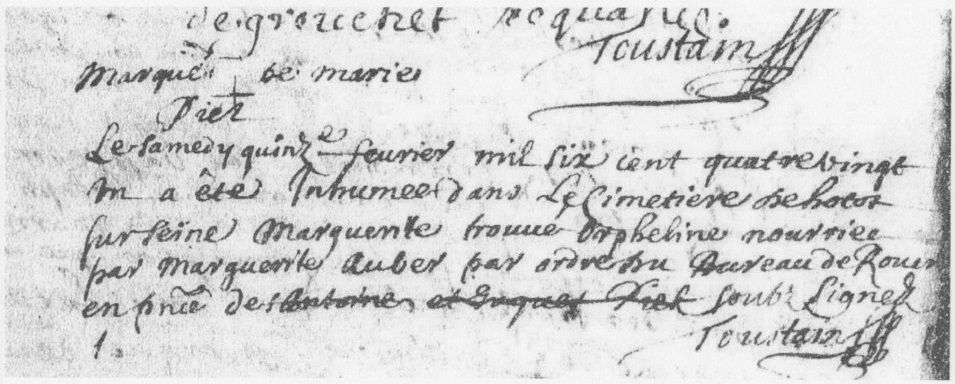 de grouchet
Toustain
marque de marie
Piel
Le samedy quinze feurier mil six cent quatre vingt
un a été Inhumee dans Le Cimetiere de hotot
sur seine Marguerite trouue Orpheline nourriee
par marguerite Auber par ordre du Bureau de Rouen
en pnce des Antoine et Piel soubz Lignez
Toustain
1